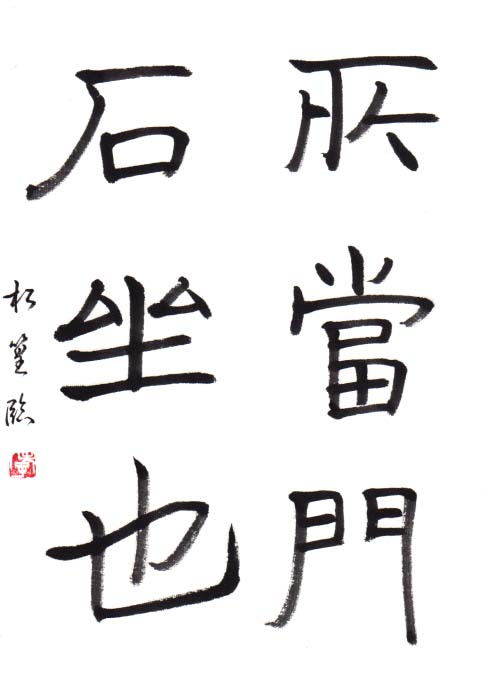 所當門
石坐也
松篁臨